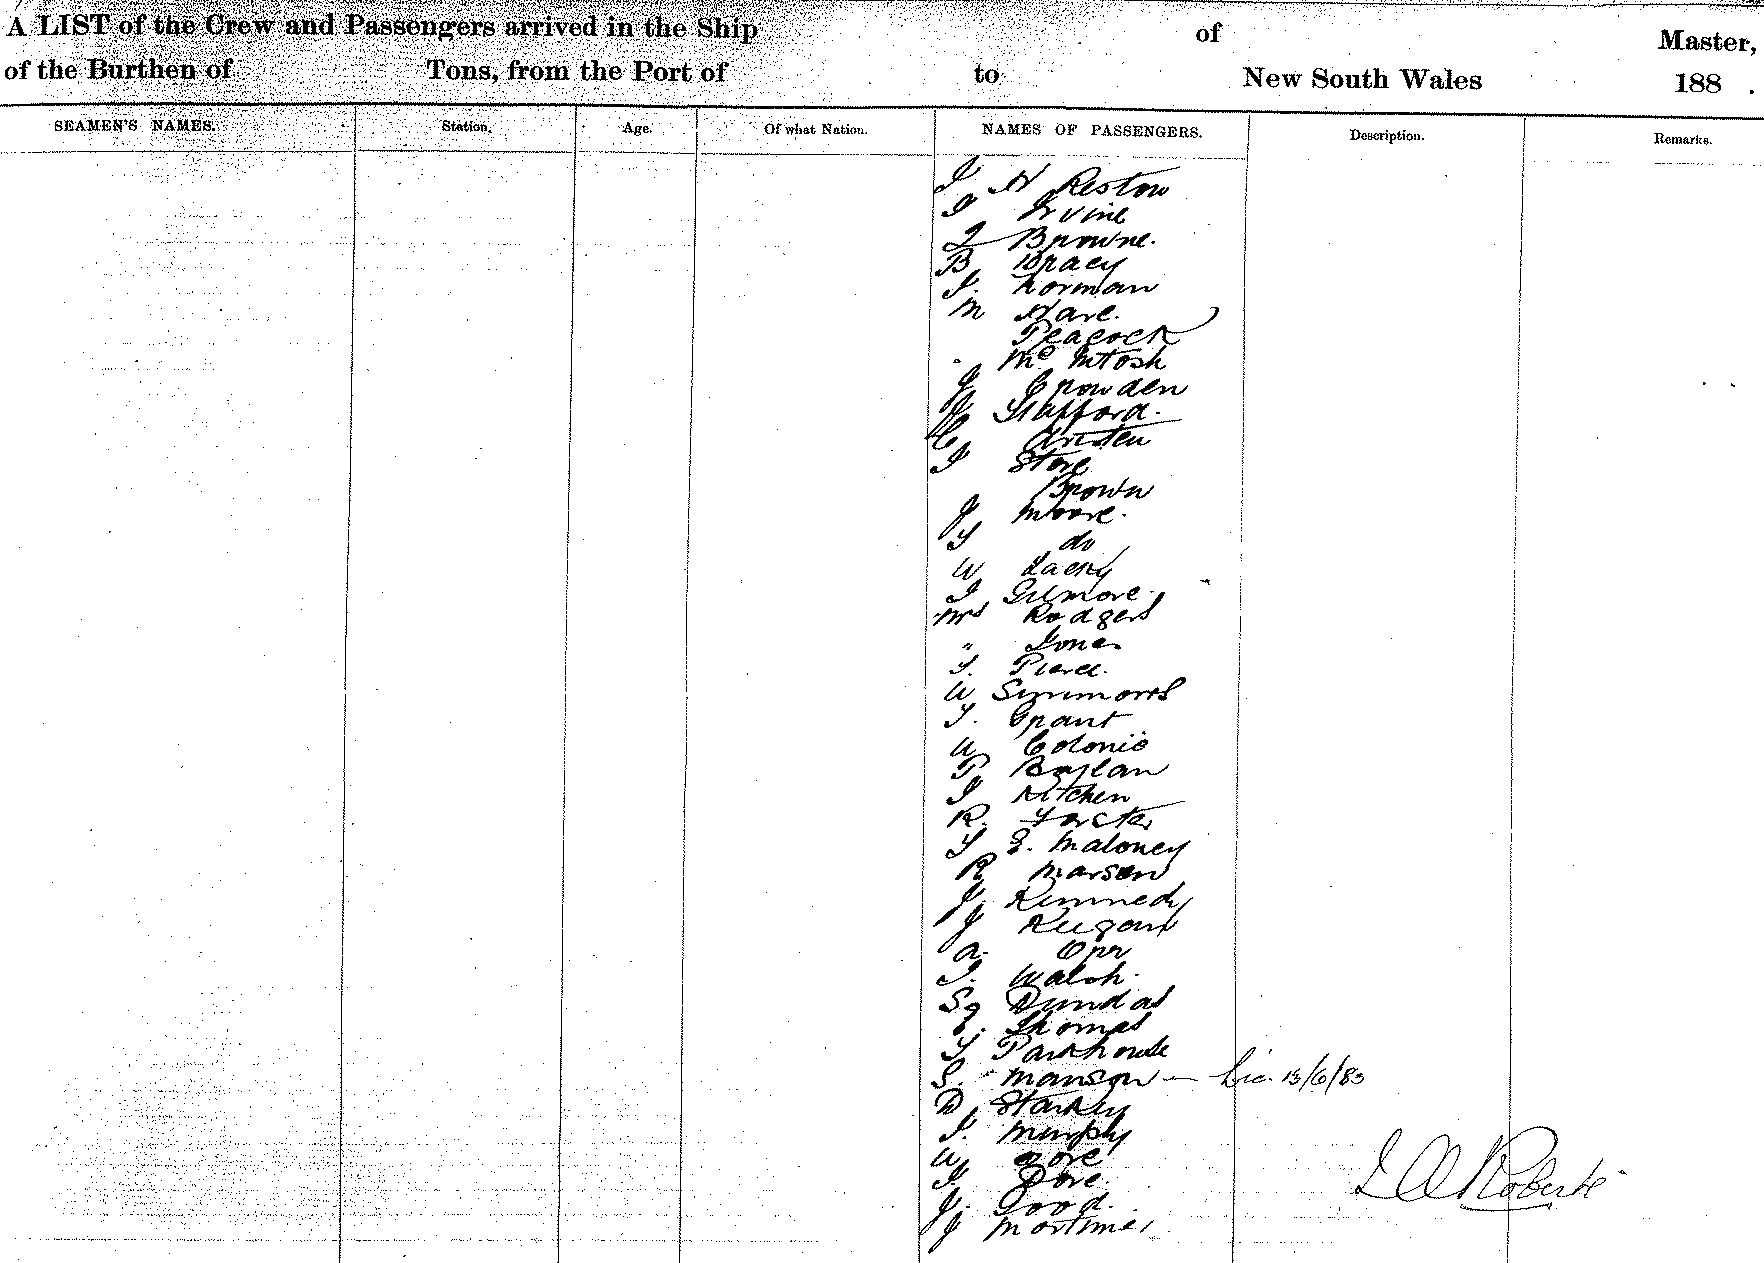 A LIST of the Crew and Passengers arrived in the Ship of Master,
of the Burthen of Tons, from the Port of to New South Wales 188 .
SEAMEN'S NAMES. Station. Age. Of what Nation. NAMES OF PASSENGERS. Description. Remarks.
Restow
Irvine
Browne.
B Bracy
J. Norman
M Hare.
Peacock
Mc Intosh
J Crowden
Stafford.
Store
Brown
J Moore.
do
W Lacey
J Gilmore.
Mrs Rodgers
" Jones
Pierce.
W Simmons
Grant
W Colonie
P Boylan
J Kitchen
R. Forster
E. Maloney
R Marsen
J. Kennedy
J Keegan
A. Orr
J. Walsh.
Dundas
Thomas
Parkhouse
S. Manson — Lic. 13/6/83
D Starkey
J. Murphy
W Gore
J Dore
J. Good.
J Mortimer
Roberts